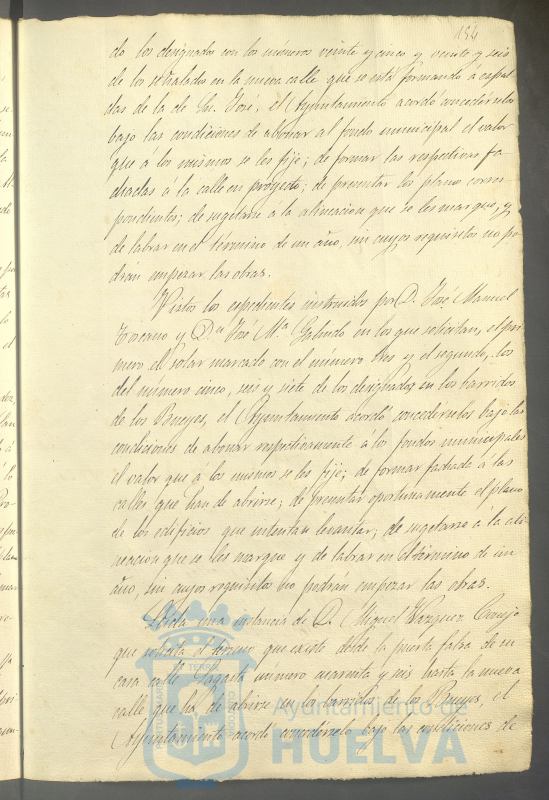 154
do los designados con los números veinte y cinco y veinte y seis
de los señalados en la nueva calle que se está formando á espal
das de la de Sn. José, el Ayuntamiento acordó concedérselos
bajo las condiciones de abonar al fondo municipal el valor
que á los mismos se les fije; de formar las respectivas fa
chadas á la calle en proyecto; de presentar los planos corres
pondientes; de sugetarse a la alineacion que se les marque, y
de labrar en el término de un año, sin cuyos requisitos no po
drán empezar las obras.
Vistos los espedientes instruidos por D. José Manuel
Toscano y Dn José Mª Galindo en los que solicitan, el pri
mero el solar marcado con el número tres y el segundo, los
del número cinco, seis y siete de los designados en los barridos
de los Bueyes, el Ayuntamiento acordó concedérselos bajo las
condiciones de abonar respectivamente á los fondos municipales
el valor que á los mismos se les fije; de formar fachada á las
calles que han de abrirse; de presentar oportunamente el plano
de los edificios que intentan levantar; de sugetarse a la ali
neacion que se les marque y de labrar en el término de un
año, sin cuyos requisitos no podrán empezar las obras.
Leida una instancia de D. Miguel Vazquez
que solicita el terreno que existe desde la puerta falsa de su
casa calle Sagasta número cuarenta y seis hasta la nueva
calle que ha de abrirse en los barridos de los Bueyes, el
Ayuntamiento acordó concedérselo bajo las condiciones de
Ayuntamiento de
HUELVA